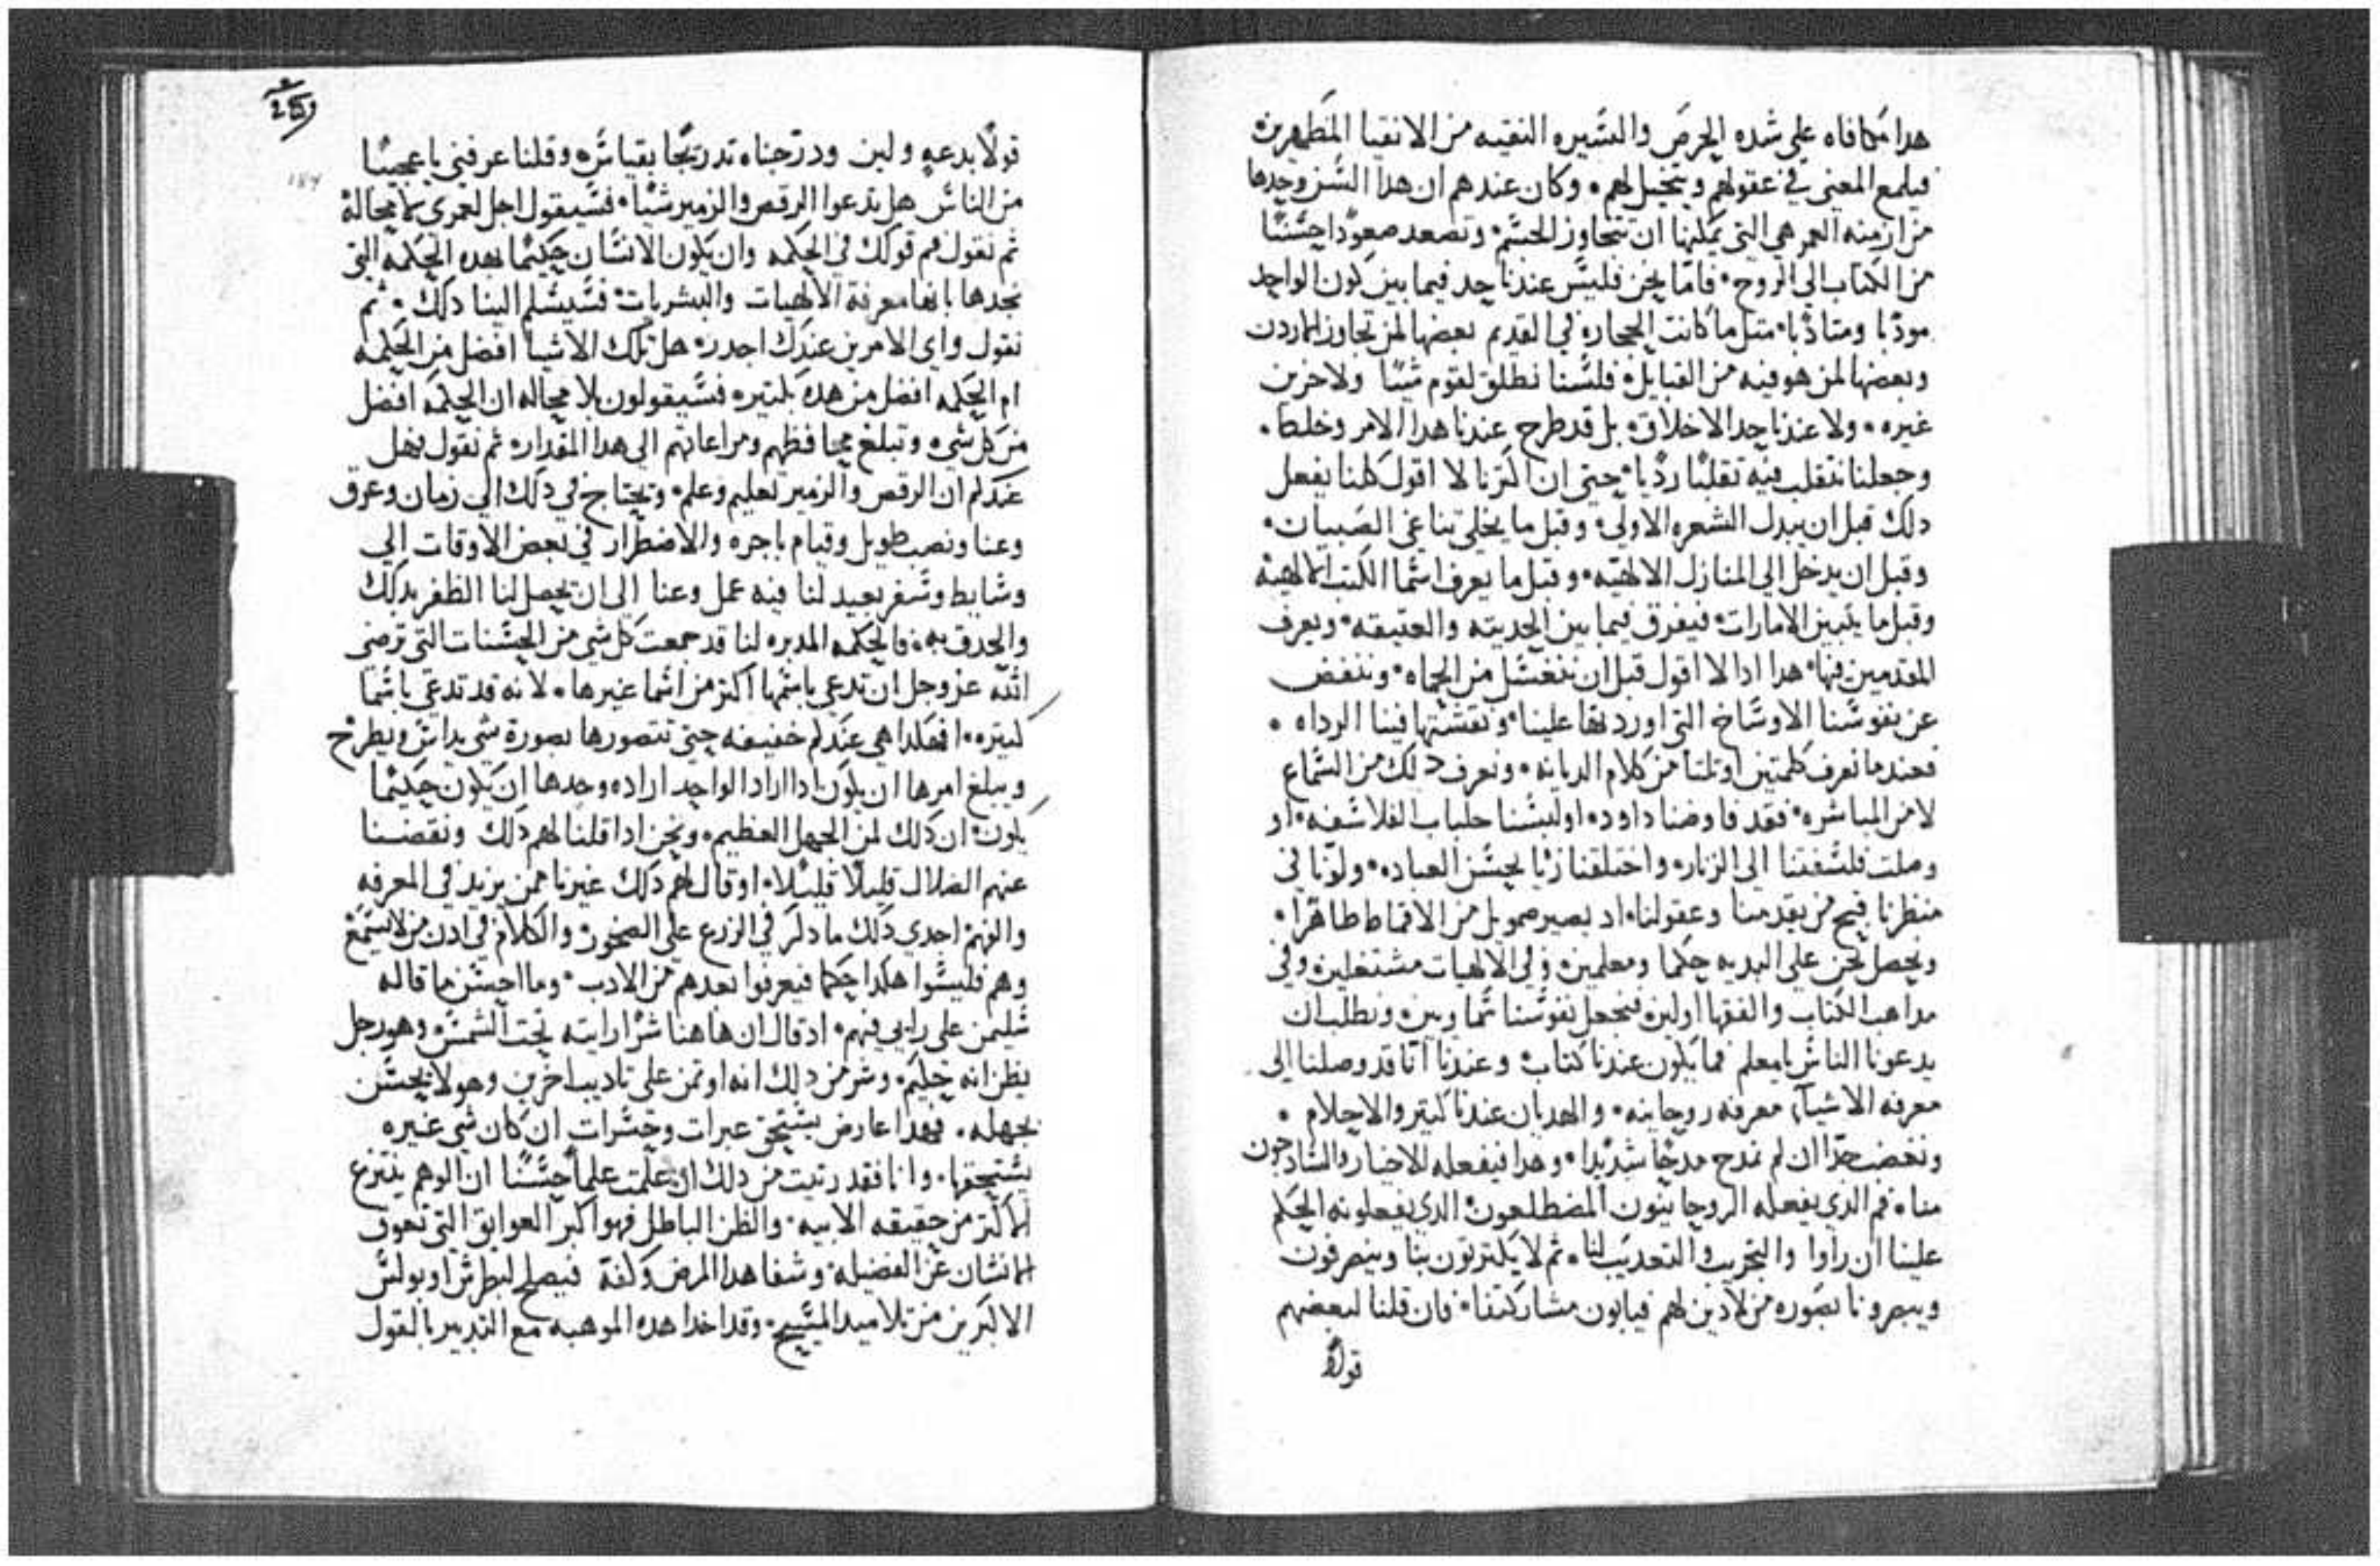 هدا مكافاه على شده الحرص والسيره النقيه من الاتقيا المطهرين
فيلمع المعنى في عقولهم ويتخيل لهم وكان عندهم ان هدا السن وحدها
من ازمنه العمر هي التي يمكنها ان تتجاوز الجسم وتصعد صعودا حسنا
من الكتاب الى الروح فاما نحن فليس عندنا حد فيما بين كون الواحد
مودبا ومتادبا متل ما كانت الحجاره في القديم بعضها لمن تجاوز الاردن
وبعضها لمن هو فيه من القبايل فلسنا نطلق لقوم شيا ولاخرين
غيره ولا عندنا حد الاخلاق بل قد طرح عندنا هدا الامر وخلط
وجعلنا نتقلب فيه تقلبا رديا حتى ان اكترنا لا اقول كلنا يفعل
دلك قبل ان يبدل الشعره الاولى وقبل ما يخلي تناغي الصبيان
وقبل ان يدخل الى المنازل الالهيه وقبل ما يعرف اسما الكتب الالهيه
وقبل ما يتبين الامارات فيفرق فيما بين الحديته والعتيقه ويعرف
المقدمين فيها هدا ادا لا اقول قبل ان نتغسل من الحماه وننفض
عن نفوسنا الاوساخ التي اوردتها علينا ونقشتها فينا الرداه
فعندما نعرف كلمتين او تلتا من كلام الديانه ونعرف دلك من السماع
لا من المباشره فقد فاوضنا داود او لبسنا جلباب الفلاسفه او
وصلت فلسفتنا الى الزنار واختلقنا زيا بحسن العباده ولونا في
منظرنا فيح من يقدمنا وعقولنا اد يصير صمويل من الاقماط طاهرا
ونحصل نحن على البديه حكما ومعلمين وفي الالهيات مشتغلين وفي
مداهب الكتاب والفقها اولين فنجعل نفوسنا سماويين ونطلب ان
يدعونا الناس يا معلم فما يكون عندنا كتاب وعندنا انا قد وصلنا الى
معرفه الاشيا معرفه روحانيه والهديان عندنا كتير والاحلام
ونغضب جدا ان لم نمدح مدحا شديدا وهدا فيفعله الاخيار والسادجون
منا فم الدي يفعله الروحانيون المضطلعون الدي يفعلونه الحكم
علينا ان راوا والتجريب والتعديب لنا ثم لا يكترتون بنا وينصرفون
ويبصرونا بصوره من لا دين لهم فيابون مشاركتنا فان قلنا لبعضهم
قولا
قولا بدعه ولين ودرجناه تدريجا بقياس وقلنا عرفني يا عجيبا
من الناس هل تدعوا الرقص والزمير شيا فسيقول اجل لعمري لا محالة
ثم نقول فم قولك في الحكمه وان يكون الانسان حكيما بهده الحكمه التي
نحدها بانها معرفة الالهيات والبشريات فسيسلم الينا دلك ثم
نقول واي الامرين عندك اجدر هل تلك الاشيا افضل من الحكمه
ام الحكمه افضل من هده بكتير فسيقولون بلا محاله ان الحكمه افضل
من كل شي وتبلغ محافظهم ومراعاتهم الى هدا المقدار ثم نقول فهل
عندكم ان الرقص والزمير تعليم وعلم ويحتاج في دلك الى زمان وعرق
وعنا ونصب طويل وقيام باجره والاضطرار في بعض الاوقات الى
وشايط وسفر بعيد لنا فيه عمل وعنا الى ان يحصل لنا الظفر بدلك
والحدق به فالحكمه المدبره لنا قد جمعت كل شي من الحسنات التي ترضي
الله عز وجل ان تدعى باسمها اكتر من اسما غيرها لانه قد تدعى باسما
كتيره افهكدا هي عندكم خفيفه حتى نتصورها بصورة شي يداس ويطرح
ويبلغ امرها ان يكون ادا اراد الواحد اراده وحدها ان يكون حكيما
يكون ان دلك لمن الجهل العظيم ونحن ادا قلنا لهم دلك ونقضنا
عنهم الضلال قليلا قليلا او قال لهم دلك غيرنا ممن يزيد في المعرفه
والفهم اجدى دلك ما دكر في الزرع على الصخور والكلام في ادن من لا يسمع
وهم فليسوا هكدا حكما فيعرفوا بعدهم من الادب وما احسن ما قاله
سليمن على رايي فيهم اد قال ان هاهنا شرا رايته تحت الشمس وهو رجل
يظن انه حكيم وشر من دلك انه اوتمن على تاديب اخرين وهو لا يحسن
بجهله فهدا عارض يستحق عبرات وحسرات ان كان شي غيره
يستحقها وانا فقد رتيت من دلك اد علمت علما حسنا ان الوهم ينتزع
الاكتر من حقيقه الانيه والظن الباطل فهو اكبر العوايق التي تعوق
الانسان عن الفضيله وشفا هدا المرض وكفه فيصلح لبطرس او بولس
الاكبرين من تلاميد المسيح وقد اخدا هده الموهبه مع التدبير بالقول
184